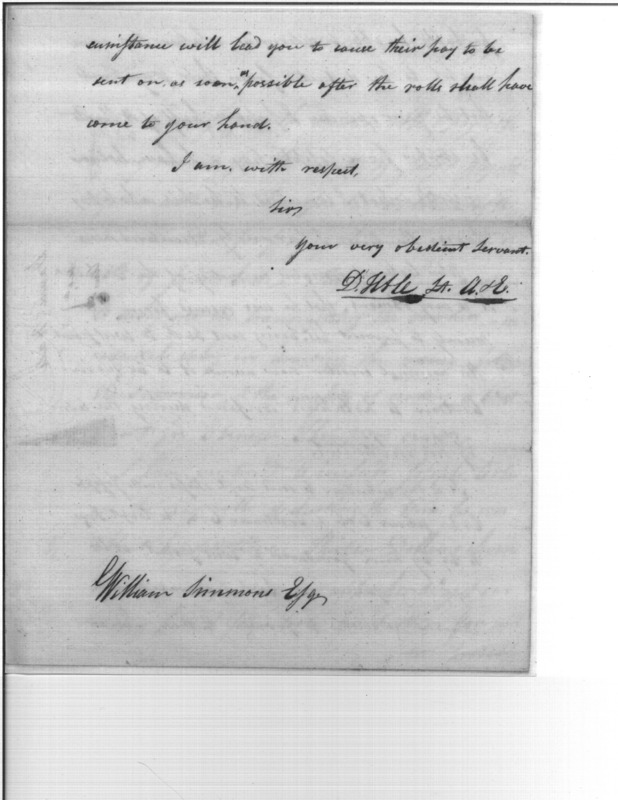 cumstance will lead you to cause their pay to be
sent on. as soon, as possible after the rolls shall have
come to your hand.
I am. with respect,
Sir,
Your very obedient Servant.
D. Lt. A. & E.
William Simmons Esqr